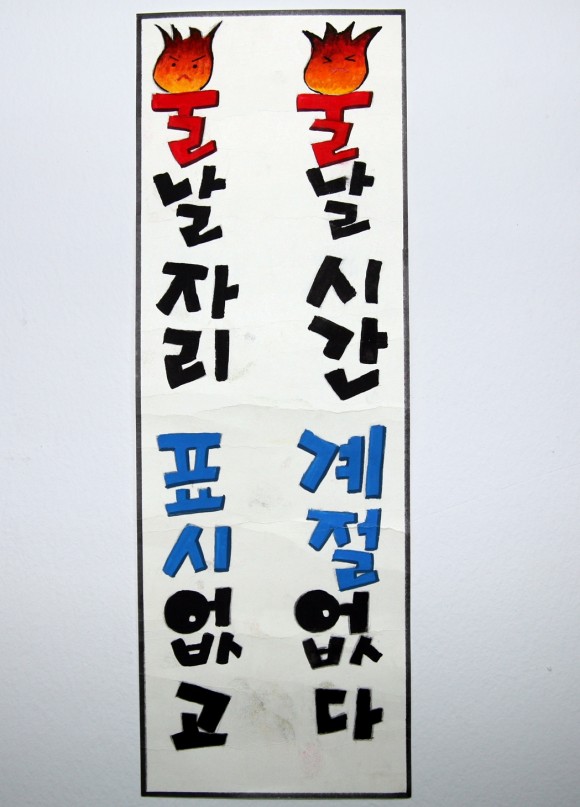 불날 자리 표시없고
불날 시간 계절없다